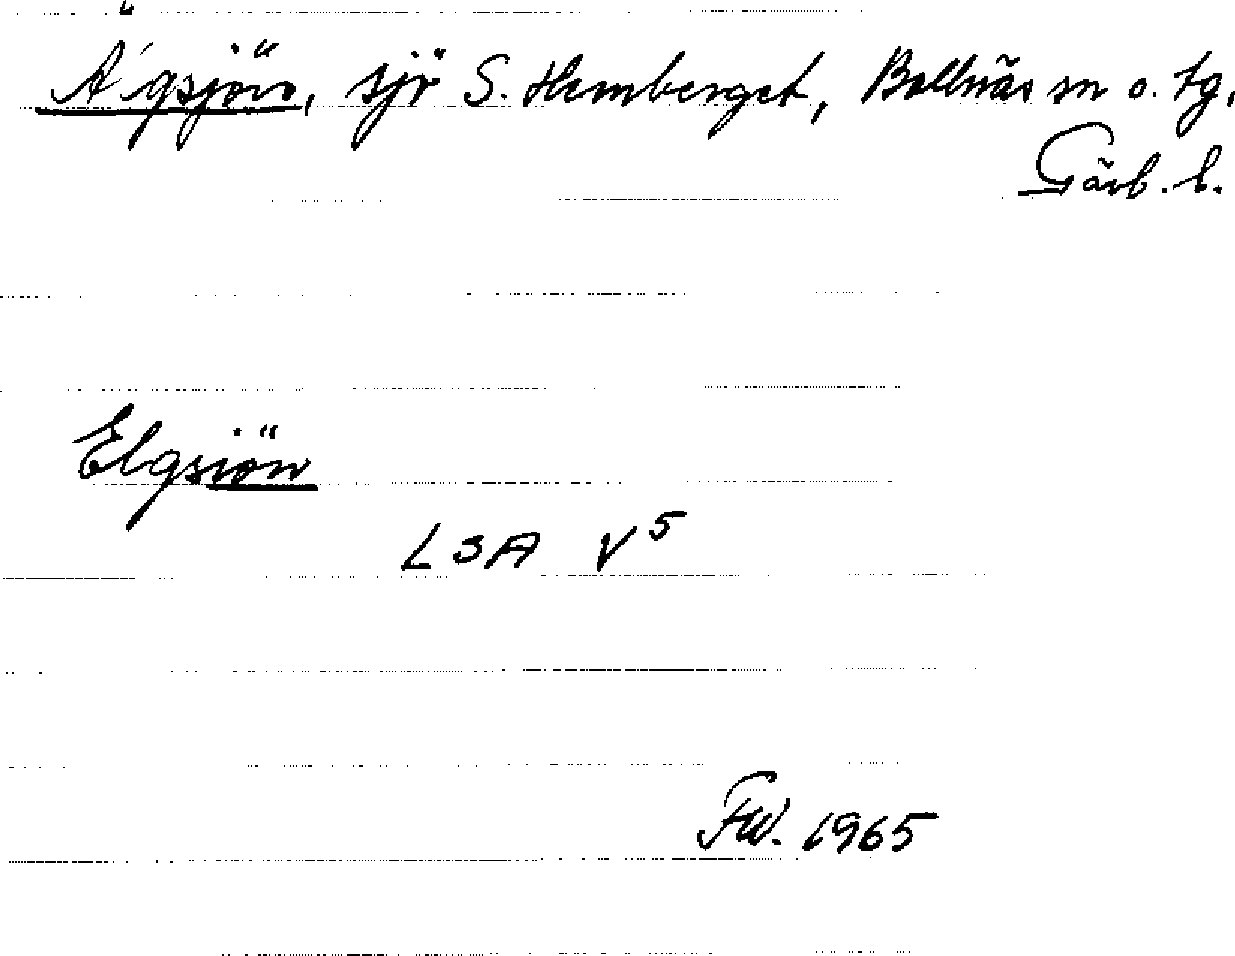 Ä'gsjön, sjö S. Hemberget, Bollnäs sn o. tg,
Gävb. l.
Elgsjön
LSA V5
FW. 1965